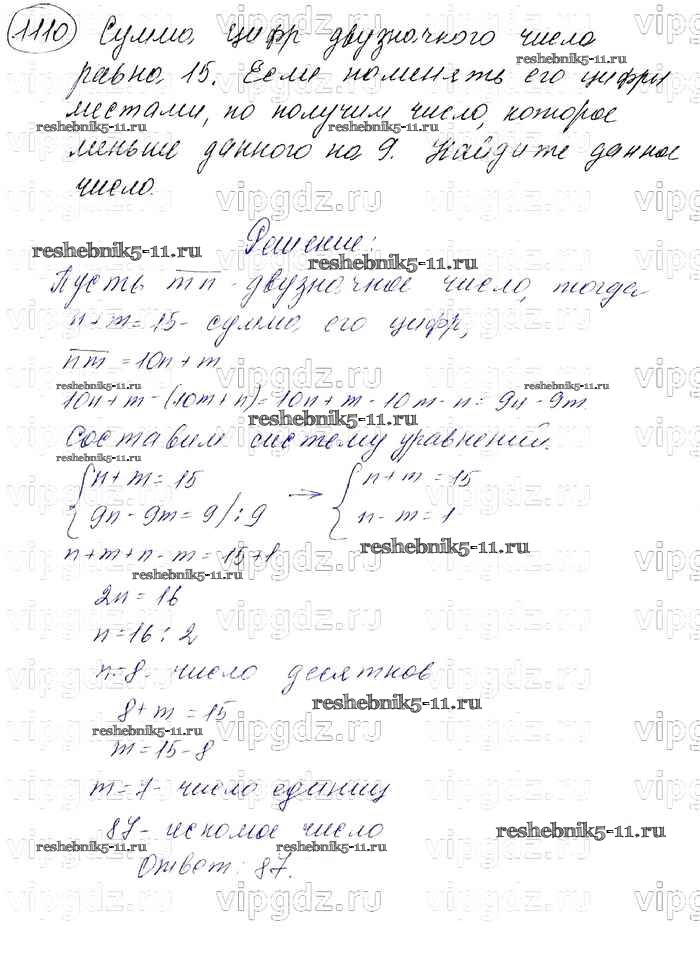 1110 Сумма цифр двузначного числа
равна 15. Если поменять его цифры
местами, то получим число, которое
меньше данного на 9. Найдите данное
число.
Решение:
Пусть mn - двузначное число, тогда
n+m=15- сумма его цифр,
nm = 10n+m
10n+m-(10m+n)=10n+m-10m-n= 9n-9m
Составим систему уравнений.
{n+m=15 → {n+m=15
9n-9m=9/:9 n-m=1
n+m+n-m=15+1
2n=16
n=16:2
n=8- число десятков
8+m=15
m=15-8
m=7- число единиц
87- искомое число
Ответ: 87.
vipgdz.ru
reshebnik5-11.ru